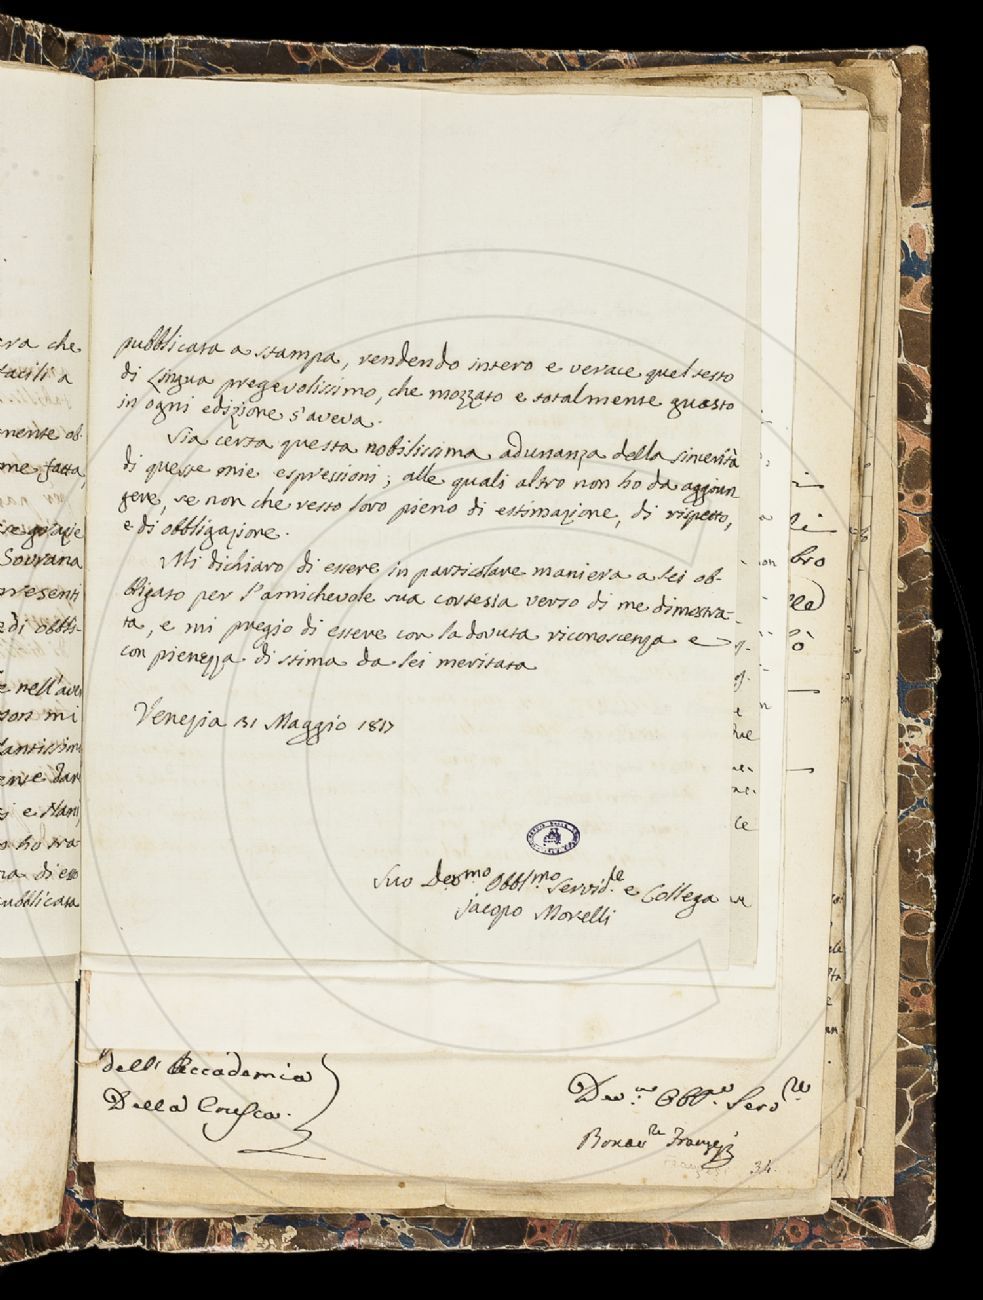 pubblicata a stampa, rendendo intero e verace quel testo
di Lingua pregevolissimo, che mozzato e totalmente guasto
in ogni edizione s'aveva.
Sia certa questa nobilissima adunanza della sincerità
di queste mie espressioni; alle quali altro non ho da aggiun
gere, se non che resto loro pieno di estimazione, di rispetto,
e di obbligazione.
Mi dichiaro di essere in particolare maniera a Lei ob-
bligato per l'amichevole sua cortesia verso di me dimostra-
ta, e mi pregio di essere con la dovuta riconoscenza e
con pienezza di stima da Lei meritata
Venezia 31 Maggio 1817
Suo Devmo Obblmo Servid.e e Collega
Jacopo Morelli
dell' Accademia
Della Crusca.
Dev.mo Obb.mo Serv.re
Bonav.ra
34
era che
facili a
mente ob
me fatta,
Sovrana
presenti
di obbli-
e nell'avve
non mi
e Nani
ho tra
pubblicata
bro